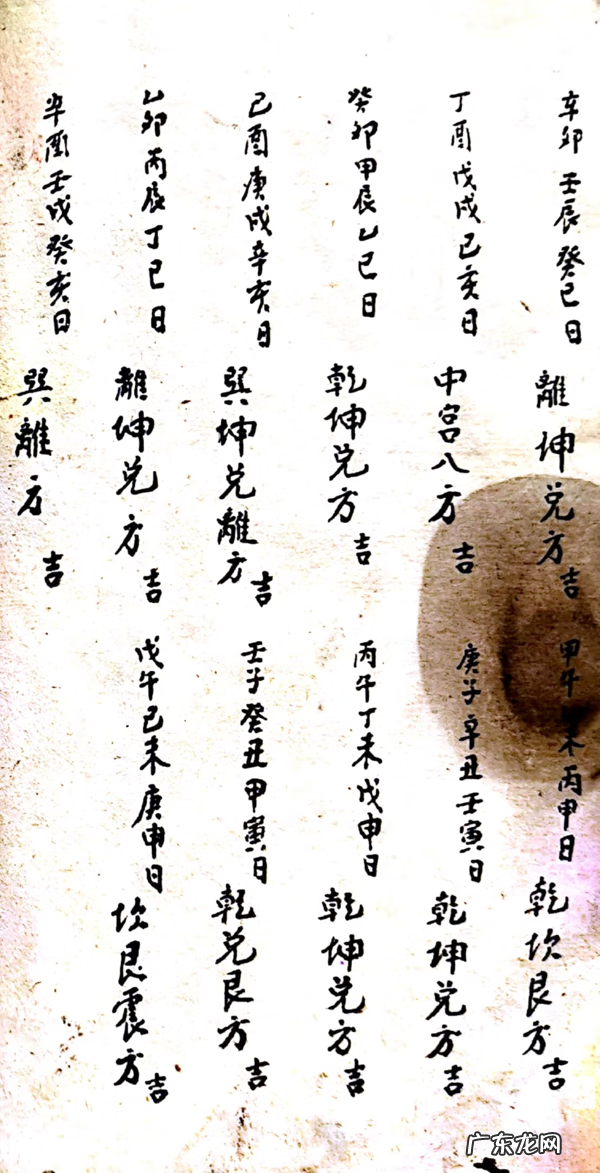 辛卯壬辰癸巳日 離坤兑方吉 甲午未丙甲日 乾坎艮方吉
丁酉戊戌己亥日 中宫八方吉 庚子辛丑壬寅日 乾坤兑方吉
癸卯甲辰乙巳日 乾坤兑方吉 丙午丁未戊申日 乾坤兑方吉
己酉庚戌辛亥日 巽坤兑離方吉 壬子癸丑甲寅日 乾兑艮方吉
乙卯丙辰丁巳日 離坤兑方吉 戊午己未庚申日 坎艮震方吉
辛酉壬戌癸亥日 巽離方吉
广东龙网